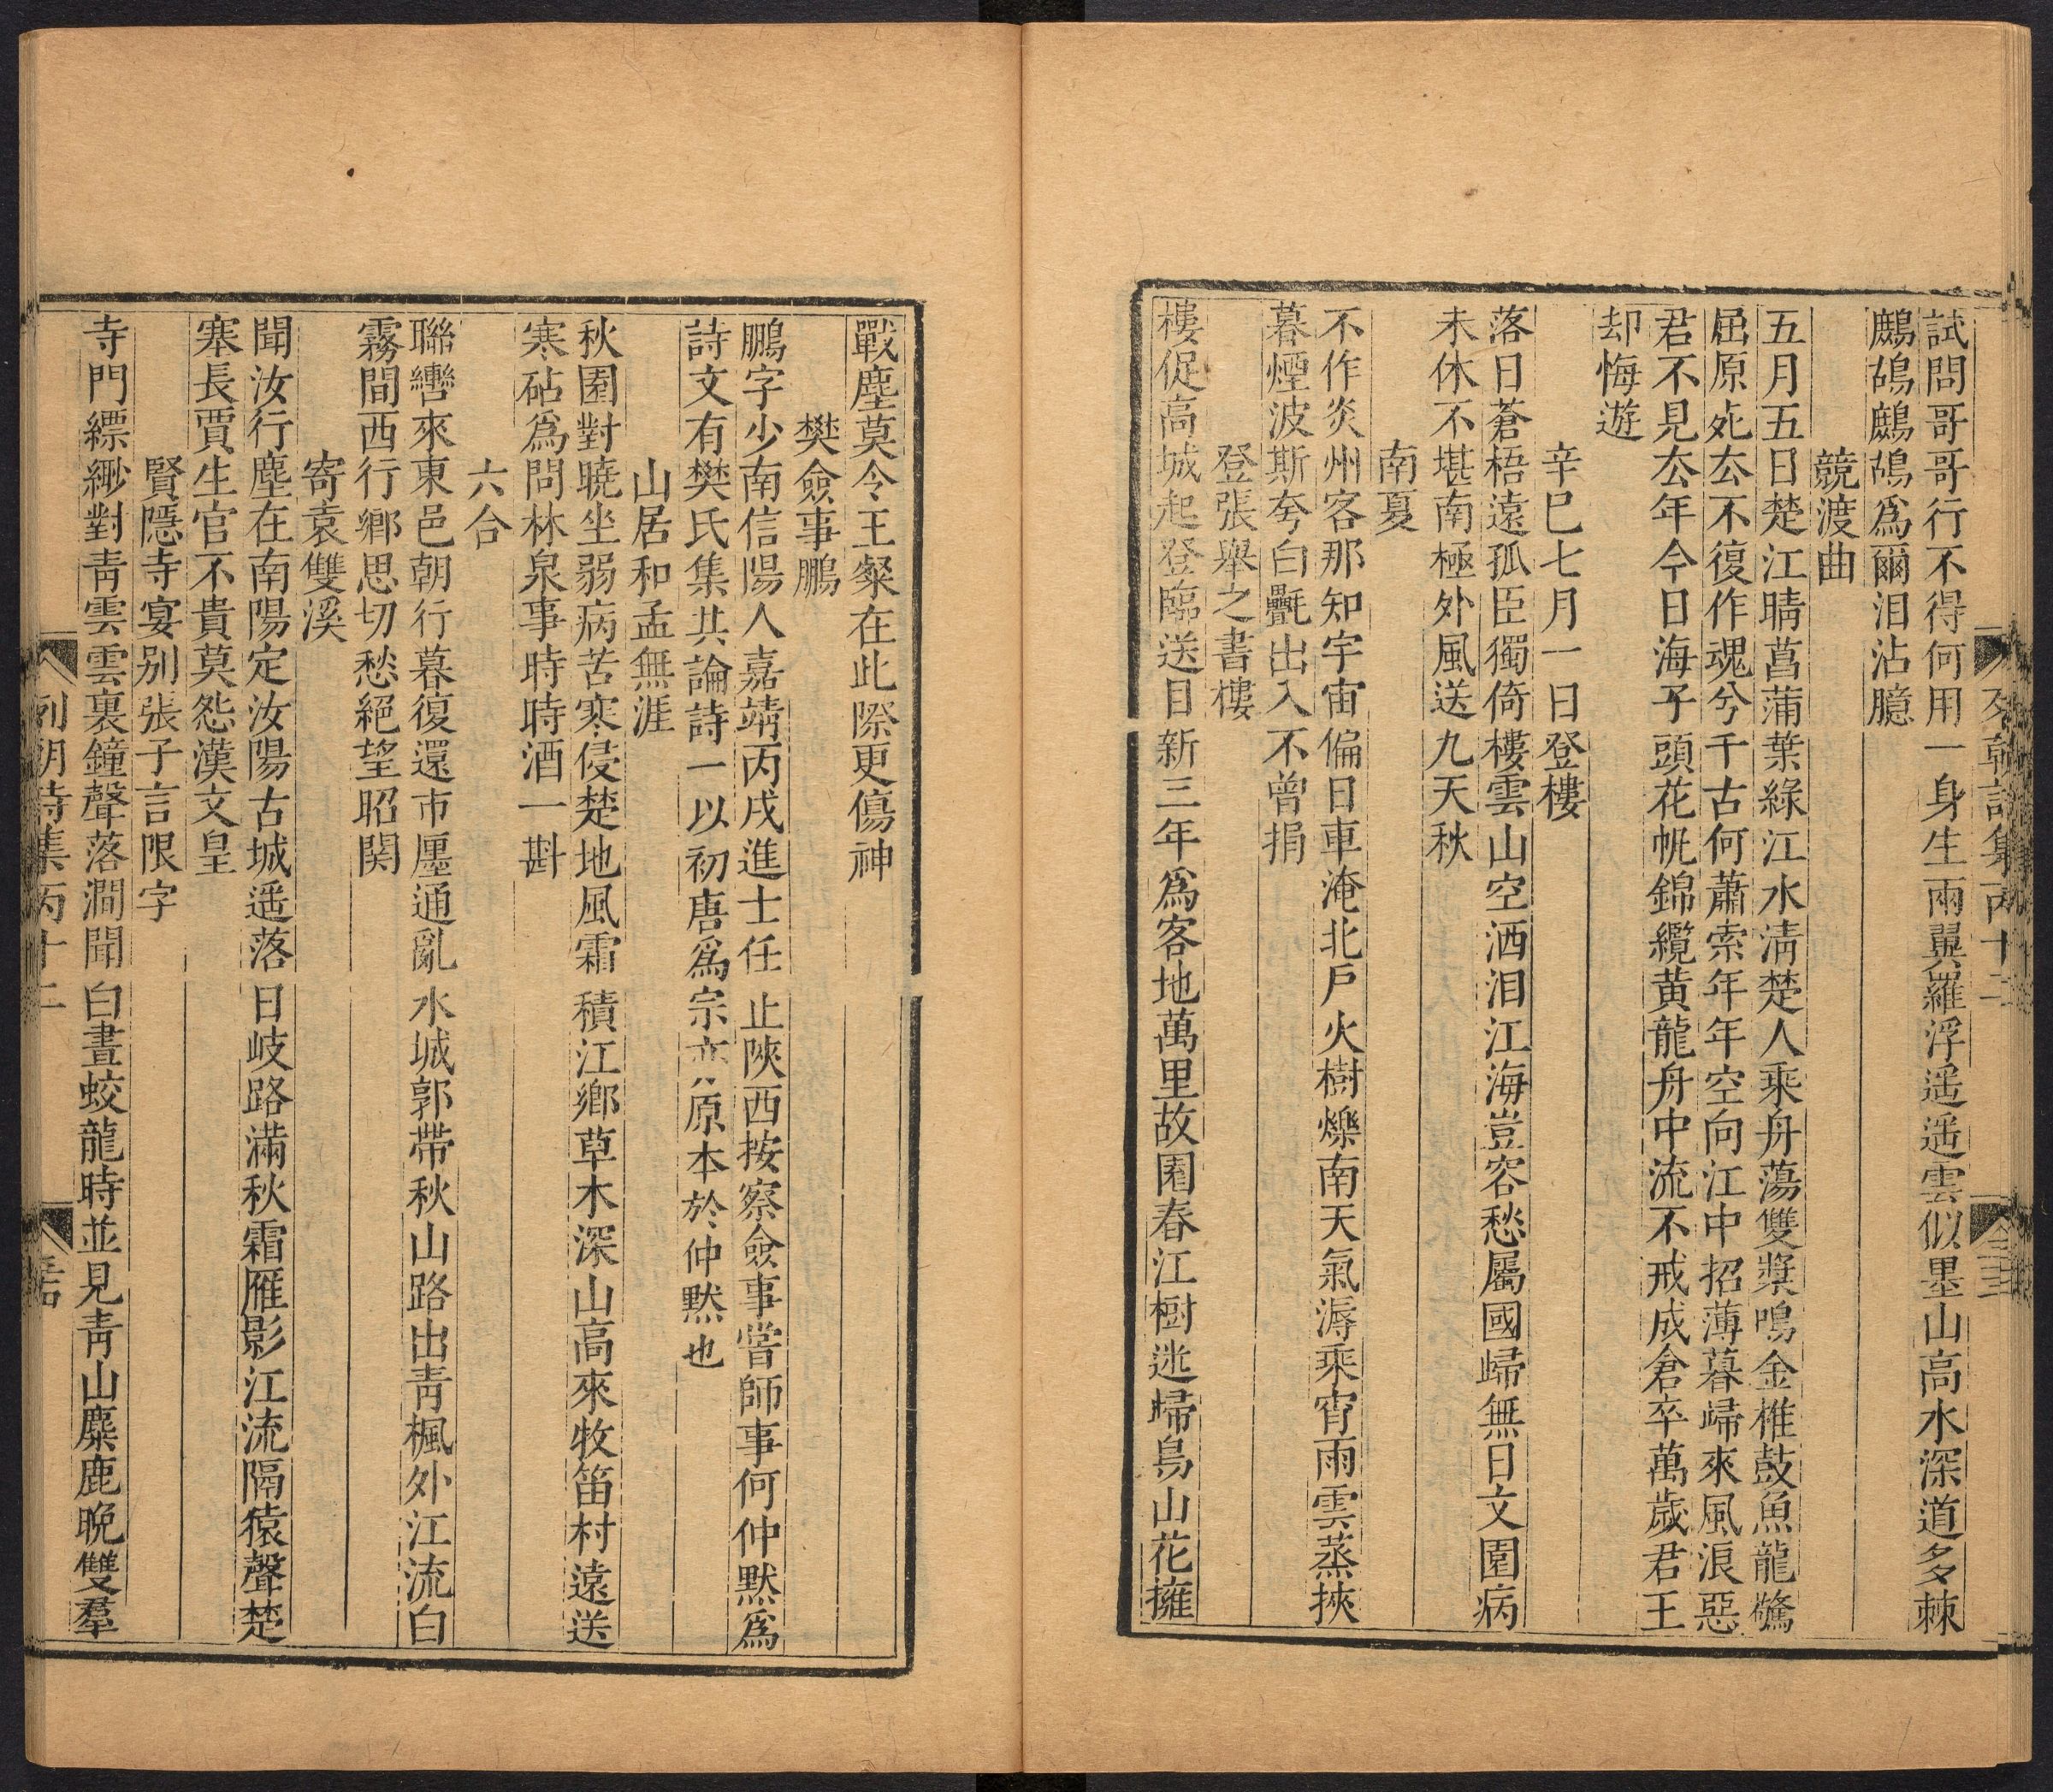 試問哥哥行不得何用一身生兩翼羅浮遥遥雲似墨山高水深道多棘
鷓鴣鷓鴣爲爾泪沾臆
競渡曲
五月五日楚江晴菖蒲葉綠江水淸楚人乘舟蕩雙槳鳴金椎鼓魚龍驚
屈原死去不復作魂兮千古何蕭索年年空向江中招薄暮歸來風浪惡
君不見去年今日海子頭花帆錦纜黄龍舟中流不戒成倉卒萬歲君王
却悔遊
辛巳七月一日登樓
落日蒼梧遠孤臣獨倚樓雲山空洒泪江海豈容愁屬國歸無日文園病
未休不堪南極外風送九天秋
南夏
不作炎州客那知宇宙偏日車淹北戸火樹爍南天氣溽乘宵雨雲蒸挾
暮煙波斯夸白氎出入不曾捐
登張舉之書樓
樓促高城起登臨送目新三年爲客地萬里故園春江樹迷歸鳥山花擁
戰塵莫令王粲在此際更傷神
樊僉事鵬
鵬字少南信陽人嘉靖丙戌進士任止陝西按察僉事嘗師事何仲默爲
詩文有樊氏集其論詩一以初唐爲宗亦原本於仲默也
山居和孟無涯
秋園對曉坐弱病苦寒侵楚地風霜積江鄉草木深山高來牧笛村遠送
寒砧爲問林泉事時時酒一斟
六合
聯轡來東邑朝行暮復還市厘通亂水城郭帶秋山路出青楓外江流白
霧間西行鄉思切愁絕望昭関
寄袁雙溪
聞汝行塵在南陽定汝陽古城遥落日岐路滿秋霜雁影江流隔猿聲楚
塞長賈生官不貴莫怨漢文皇
賢隱寺宴别張子言限字
寺門縹緲對青雲雲裏鐘聲落澗聞白晝蛟龍時並見青山麋鹿晚雙羣
列朝詩集丙十二